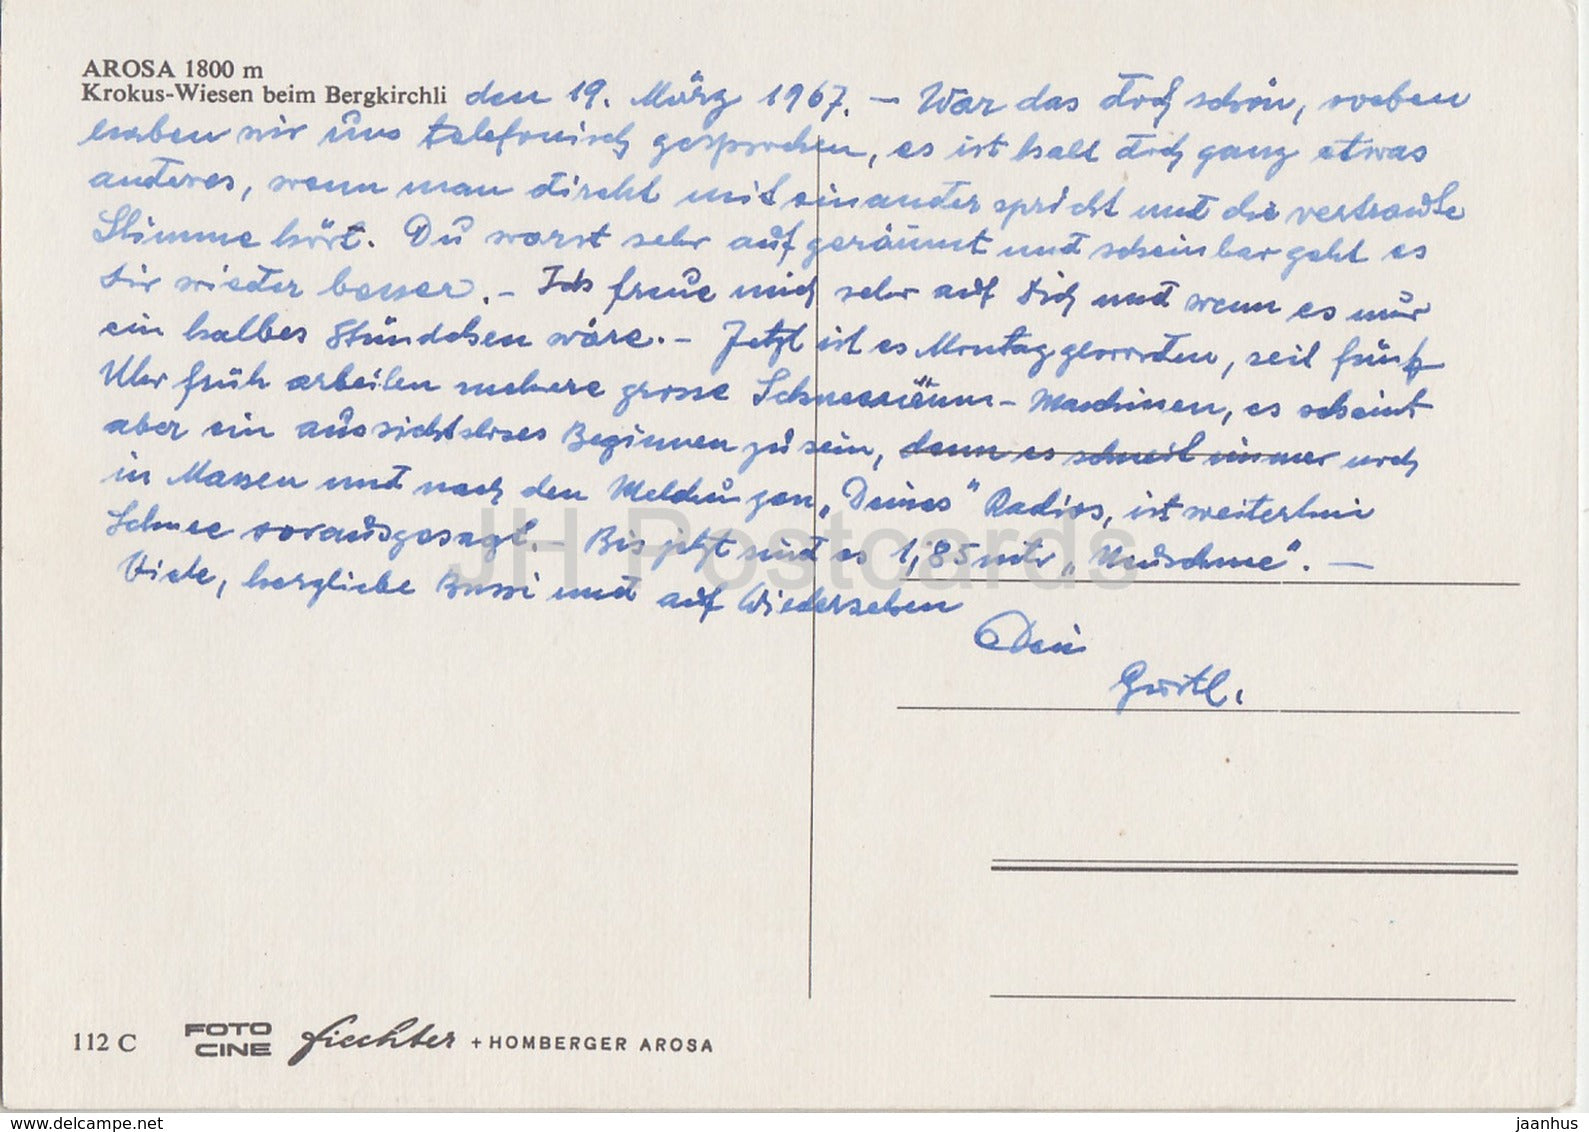 AROSA 1800 m
Krokus-Wiesen beim Bergkirchli den 19. März 1967. – War das doch schön, soeben
haben wir uns telefonisch gesprochen, es ist halt doch ganz etwas
anderes, wenn man direkt miteinander spricht und die vertraute
Stimme hört. Du warst sehr aufgeräumt und scheinbar geht es
dir wieder besser. – Ich freue mich sehr auf dich und wenn es nur
ein halbes Stündchen wäre. – Jetzt ist es Montag geworden, seit fünf
Uhr früh arbeiten mehrere grosse Schneeräum-Maschinen, es scheint
aber ein aussichtsloses Beginnen zu sein, denn es schneit immer noch
in Massen und nach den Meldungen „Deines" Radios, ist weiterhin
Schnee vorausgesagt. – Bis jetzt sind es 1,85 mtr „Neuschnee". –
Viele, herzliche Bussi und auf Wiedersehen
Dein
Gustl.
112 C FOTO CINE fiechter + HOMBERGER AROSA
JH Postcards
www.delcampe.net
jaanhus